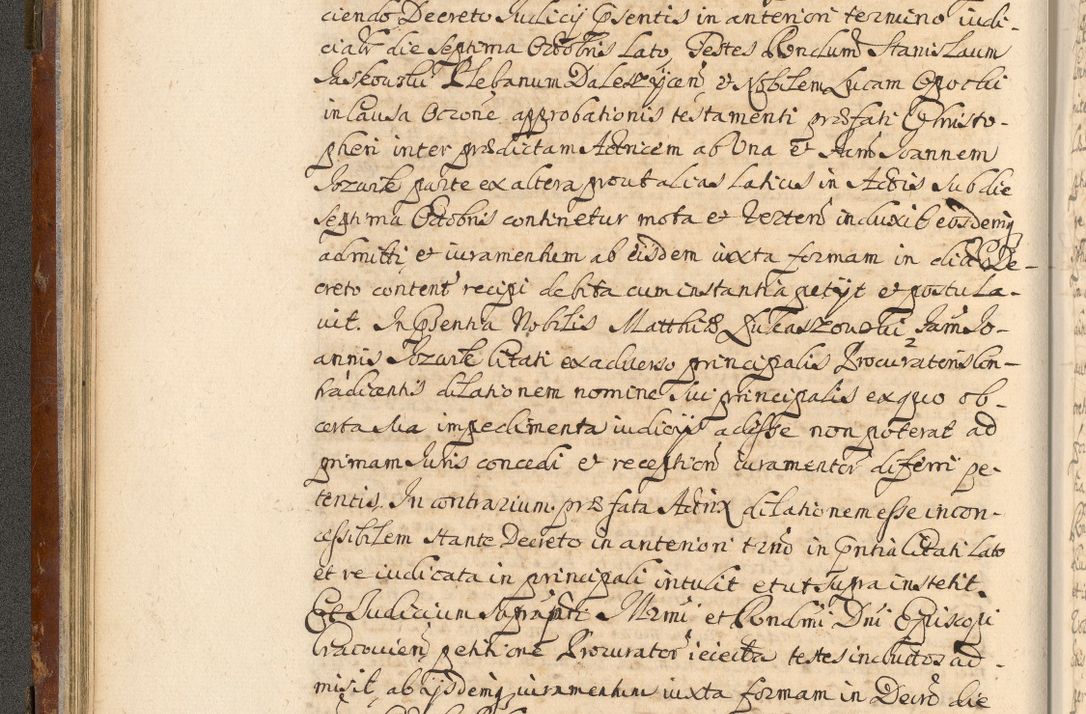 ciendo Decreto Judicij Psentis in anteriori termino iudi-
ciali die Septima Octobris lato Testes Rondum Stanislaum
Jaskowski Plebanum Daleszycen et Nobilem Lucam Opocki
in Causa Occone approbationis testamenti præfati Christo-
pheri inter prædictam Actricem ab Una et Jam Joannem
Jozwik parte ex altera prout alias latius in Actis sub die
Septima Octobris continetur mota et Verten induxit eosdemq
admitti et iuramentum ab eisdem iuxta formam in dicto De-
creto content recipi debita cum instantia petijt et postula-
vit. In Psentia Nobilis Matthiæ Lukaszowski Jam Jo-
annis Jozwik Citati ex adverso principalis Procuratoris Con-
tradicentis dilationem nomine sui principalis ex quo ob
certa sua impedimenta iudicijs adesse non poterat ad
primam Juris concedi et reception iuramentor diferri pe-
tentis. In contrarium præfata Actrix dilationem esse incon-
cessibilem stante Decreto in anteriori trno in Pntia Citati lato
et re iudicata in principali intulit et ut supra institit.
Et Judicium suprapti Illrmi et Rondmi Dni Episcopi
Cracovien petitione Procurator reiecta testes inductos ad-
misit, ab ijsdemq iuramentum iuxta formam in Decro die